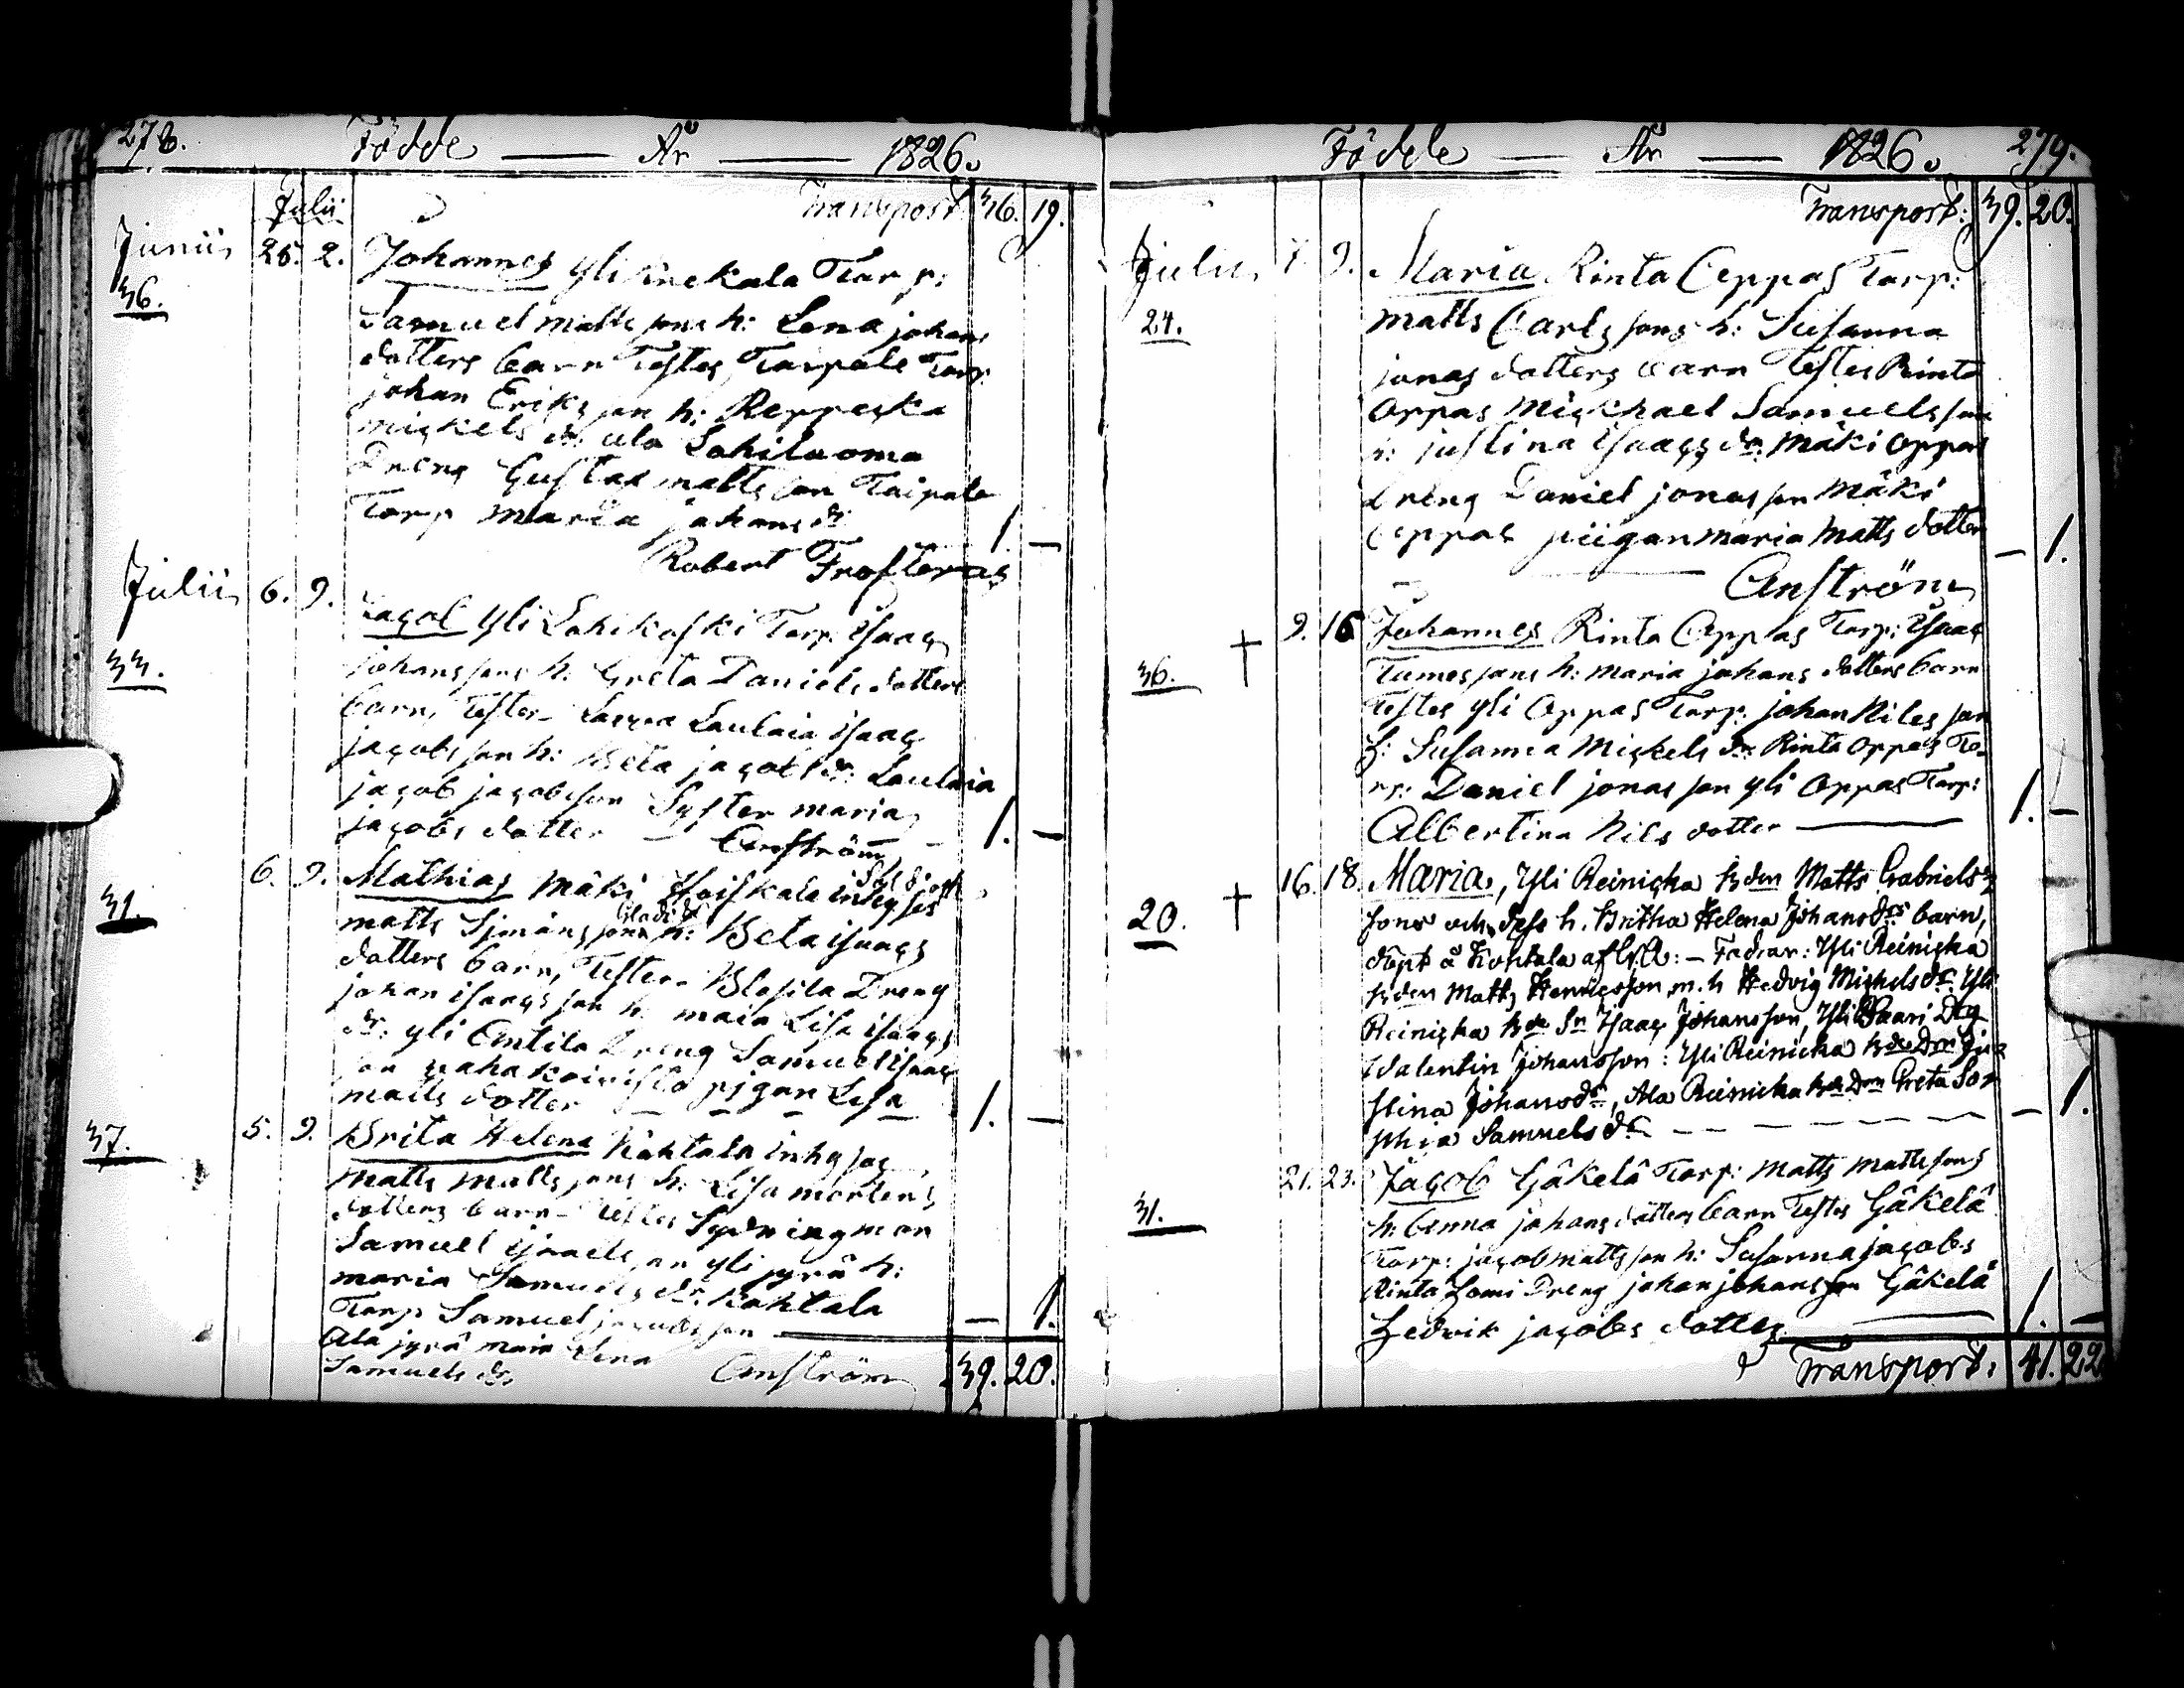 278. Födde — År — 1826.
Julii Transport: 36. 19.
Junii 25. 2. Johannes Yli Knekala Torp:
36.
Samuel Matts sons h: Lena johans
dotters barn Testes Taipale Torp
johan Eriks son h: Reppeska
mickels dr ala Sahiluoma
Dreng Gustav matts son Taipale
Torp Maria johans dr 1 —
Robert Frosterus
Julii 6. 9. Jacob Yli Sahikoski Torp: Isaac
33.
johans sons h: Greta Daniels dotters
barn, Testes Laulaia Isaac
jacobs son h: Beta jacobs dr: Laulaia
jacob jacobsson Syster maria
jacobs dotter — Enström 1. —
6. 9. Mathias Mäki Hoiskala inhyses
31.
matts Simons sons h: Beta isaacs
dotters barn, Testes Blasila Dreng
johan isaacs son h: maia Lisa isaacs
dr: yli Antila Dreng Samuel isaac
son pigan Lisa
matts dotter — — — 1. —
5. 9. Brita Helena Kahtala inhyses
37.
matts matts sons h: Lisa mortens
dotters barn — Testes Sydningman
Samuel israels son yli jyrä h:
maria Samuels dr. Kahtala
Torp Samuel son — 1.
Ala jyrä maia Lena
Samuels dr Enström 39. 20.
Födde — År — 1826. 279.
Transport: 39. 20.
Julii 7. 9. Maria Rinta Oppas Torp:
24.
matts Carls sons h: Susanna
jonas dotters barn Testes Rinta
Oppas Mickhael Samuels son
h: justina isaacs dr. Mäki Oppas
Dreng Daniel jonas son Mäki
Oppas piigan maria Matts dotter — 1.
Enström
† 9. 16 Johannes Rinta Oppas Torp: Isaac
36.
Tomes sons h: maria johans dotters barn
Testes yli Oppas Torp: johan Niles son
h: Susanna Mickels dr Rinta oppas To-
rp: Daniel jonas son yli Oppas Torp:
Albertina Nils dotter — 1. —
† 16. 18. Maria, Yli Reinicka bden Matts Gabriels-
20.
sons och dess h. Britha Helena Johansdrs barn,
döpt å Kohtala af — Faddrar: Yli Reinicka
bden Matts Henricsson m. h Hedvig Mickelsdr. Yli
Reinicka bde Sn Isaac Johansson, Yli Saari Dg
Valentin Johansson: Yli Reinicka bde Dn Ju-
stina Johansdr, Ala Reinicka bde Dn Greta So-
phia Samuelsdr — — — — — 1.
21. 23. Jacob Gäkelä Torp: matts mattssons
31.
h: Anna johans dotters barn Testes Gäkelä
Torp: jacob matts son h: Susanna jacobs
Rinta Lomi Dreng johan johansson Gäkelä
Hedvik jacobs dotter — 1. —
Transport: 41. 22